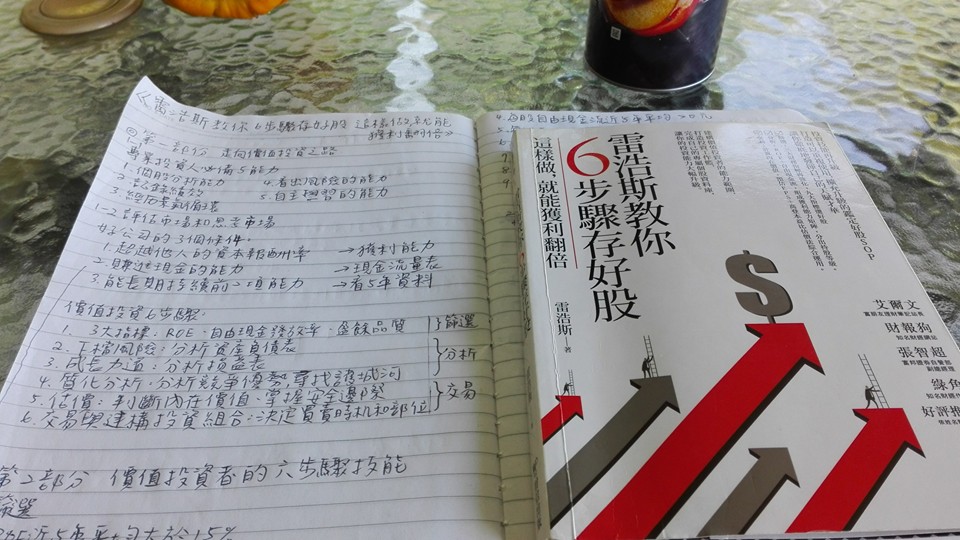 《雷浩斯教你6步驟存好股 這樣做就能
獲利翻倍》
◎第一部分 走向價值投資之路
專業投資人必備5能力
1.個股分析能力 4.看出風險的能力
2.記錄績效 5.自主學習的能力
3.經歷景氣循環
1-2 評估市場和思考市場
好公司的3個條件:
1.超越他人的資本報酬率 →獲利能力
2.賺進現金的能力 →現金流量表
3.能長期持續前二項能力 →看5年資料
價值投資6步驟:
1. 3大指標:ROE、自由現金發放率、盈餘品質 }篩選
2. 下檔風險:分析資產負債表
3. 成長力道:分析損益表 }分析
4. 質化分析:分析競爭優勢,尋找護城河
5. 估價:判斷內在價值、掌握安全邊際 }交易
6. 交易與建構投資組合:決定買賣時机和部位
第2部分 價值投資者的六步驟技能
篩選
近5年平均大於15%
4.每股自由現金流近5年平均
5.
7
8
9
雷浩斯教你
6步驟存好股
這樣做,就能獲利翻倍
雷浩斯 著
$
艾爾文
財報狗
知名財經網站
張智超
綠角
好評推